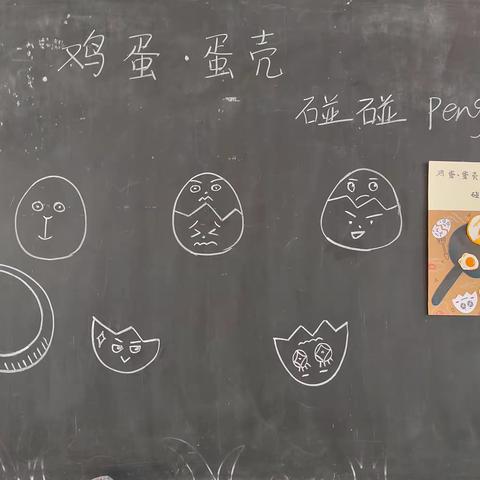 鸡蛋·蛋壳
碰碰 peng
鸡蛋·蛋壳
碰